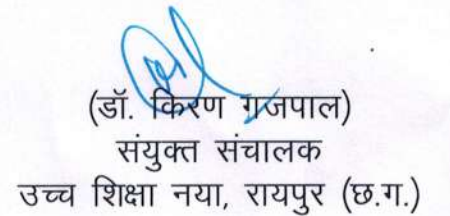 (डॉ. किरण गजपाल)
संयुक्त संचालक
उच्च शिक्षा नया, रायपुर (छ.ग.)